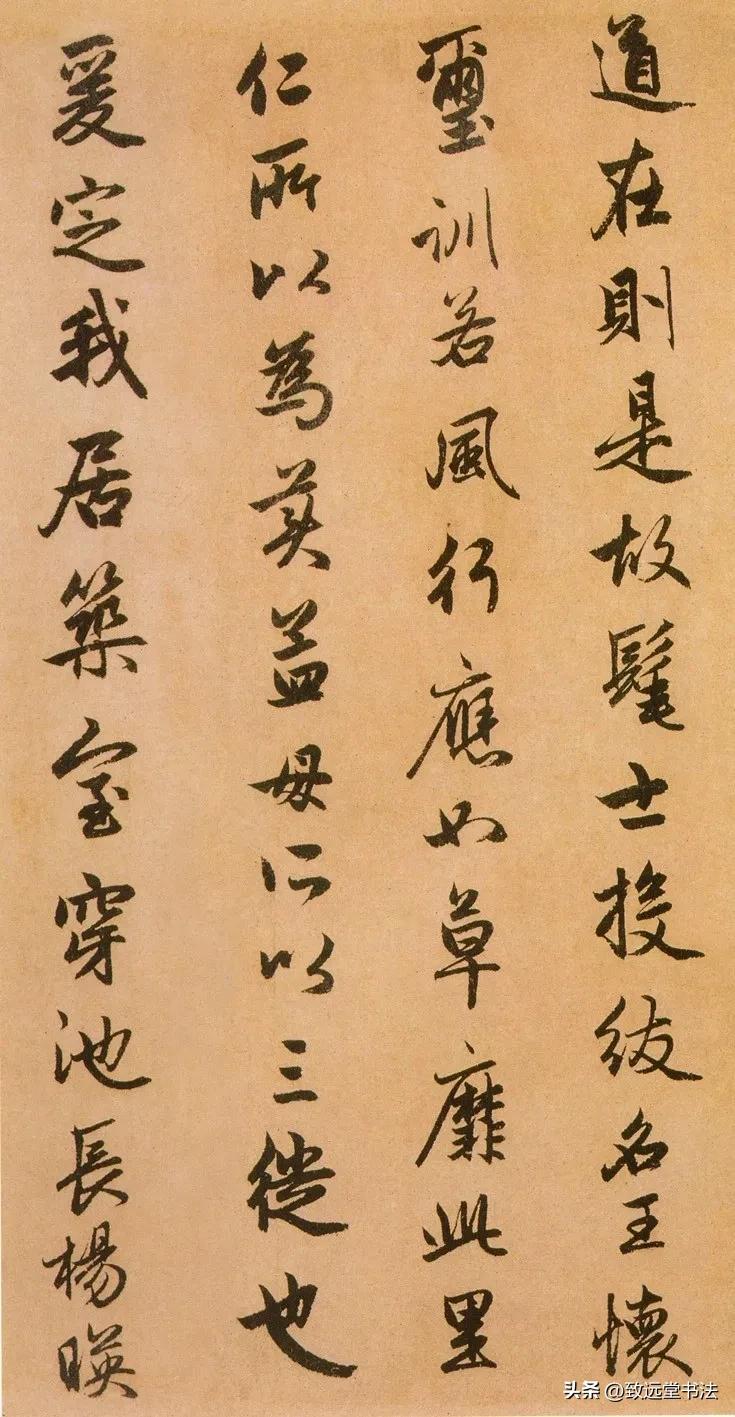 道在則是故髦士投紱名王懷
璽訓若風行應如草靡此里
仁所以為美孟母所以三徙也
爰定我居築室穿池長楊暎
头条 @致远堂书法